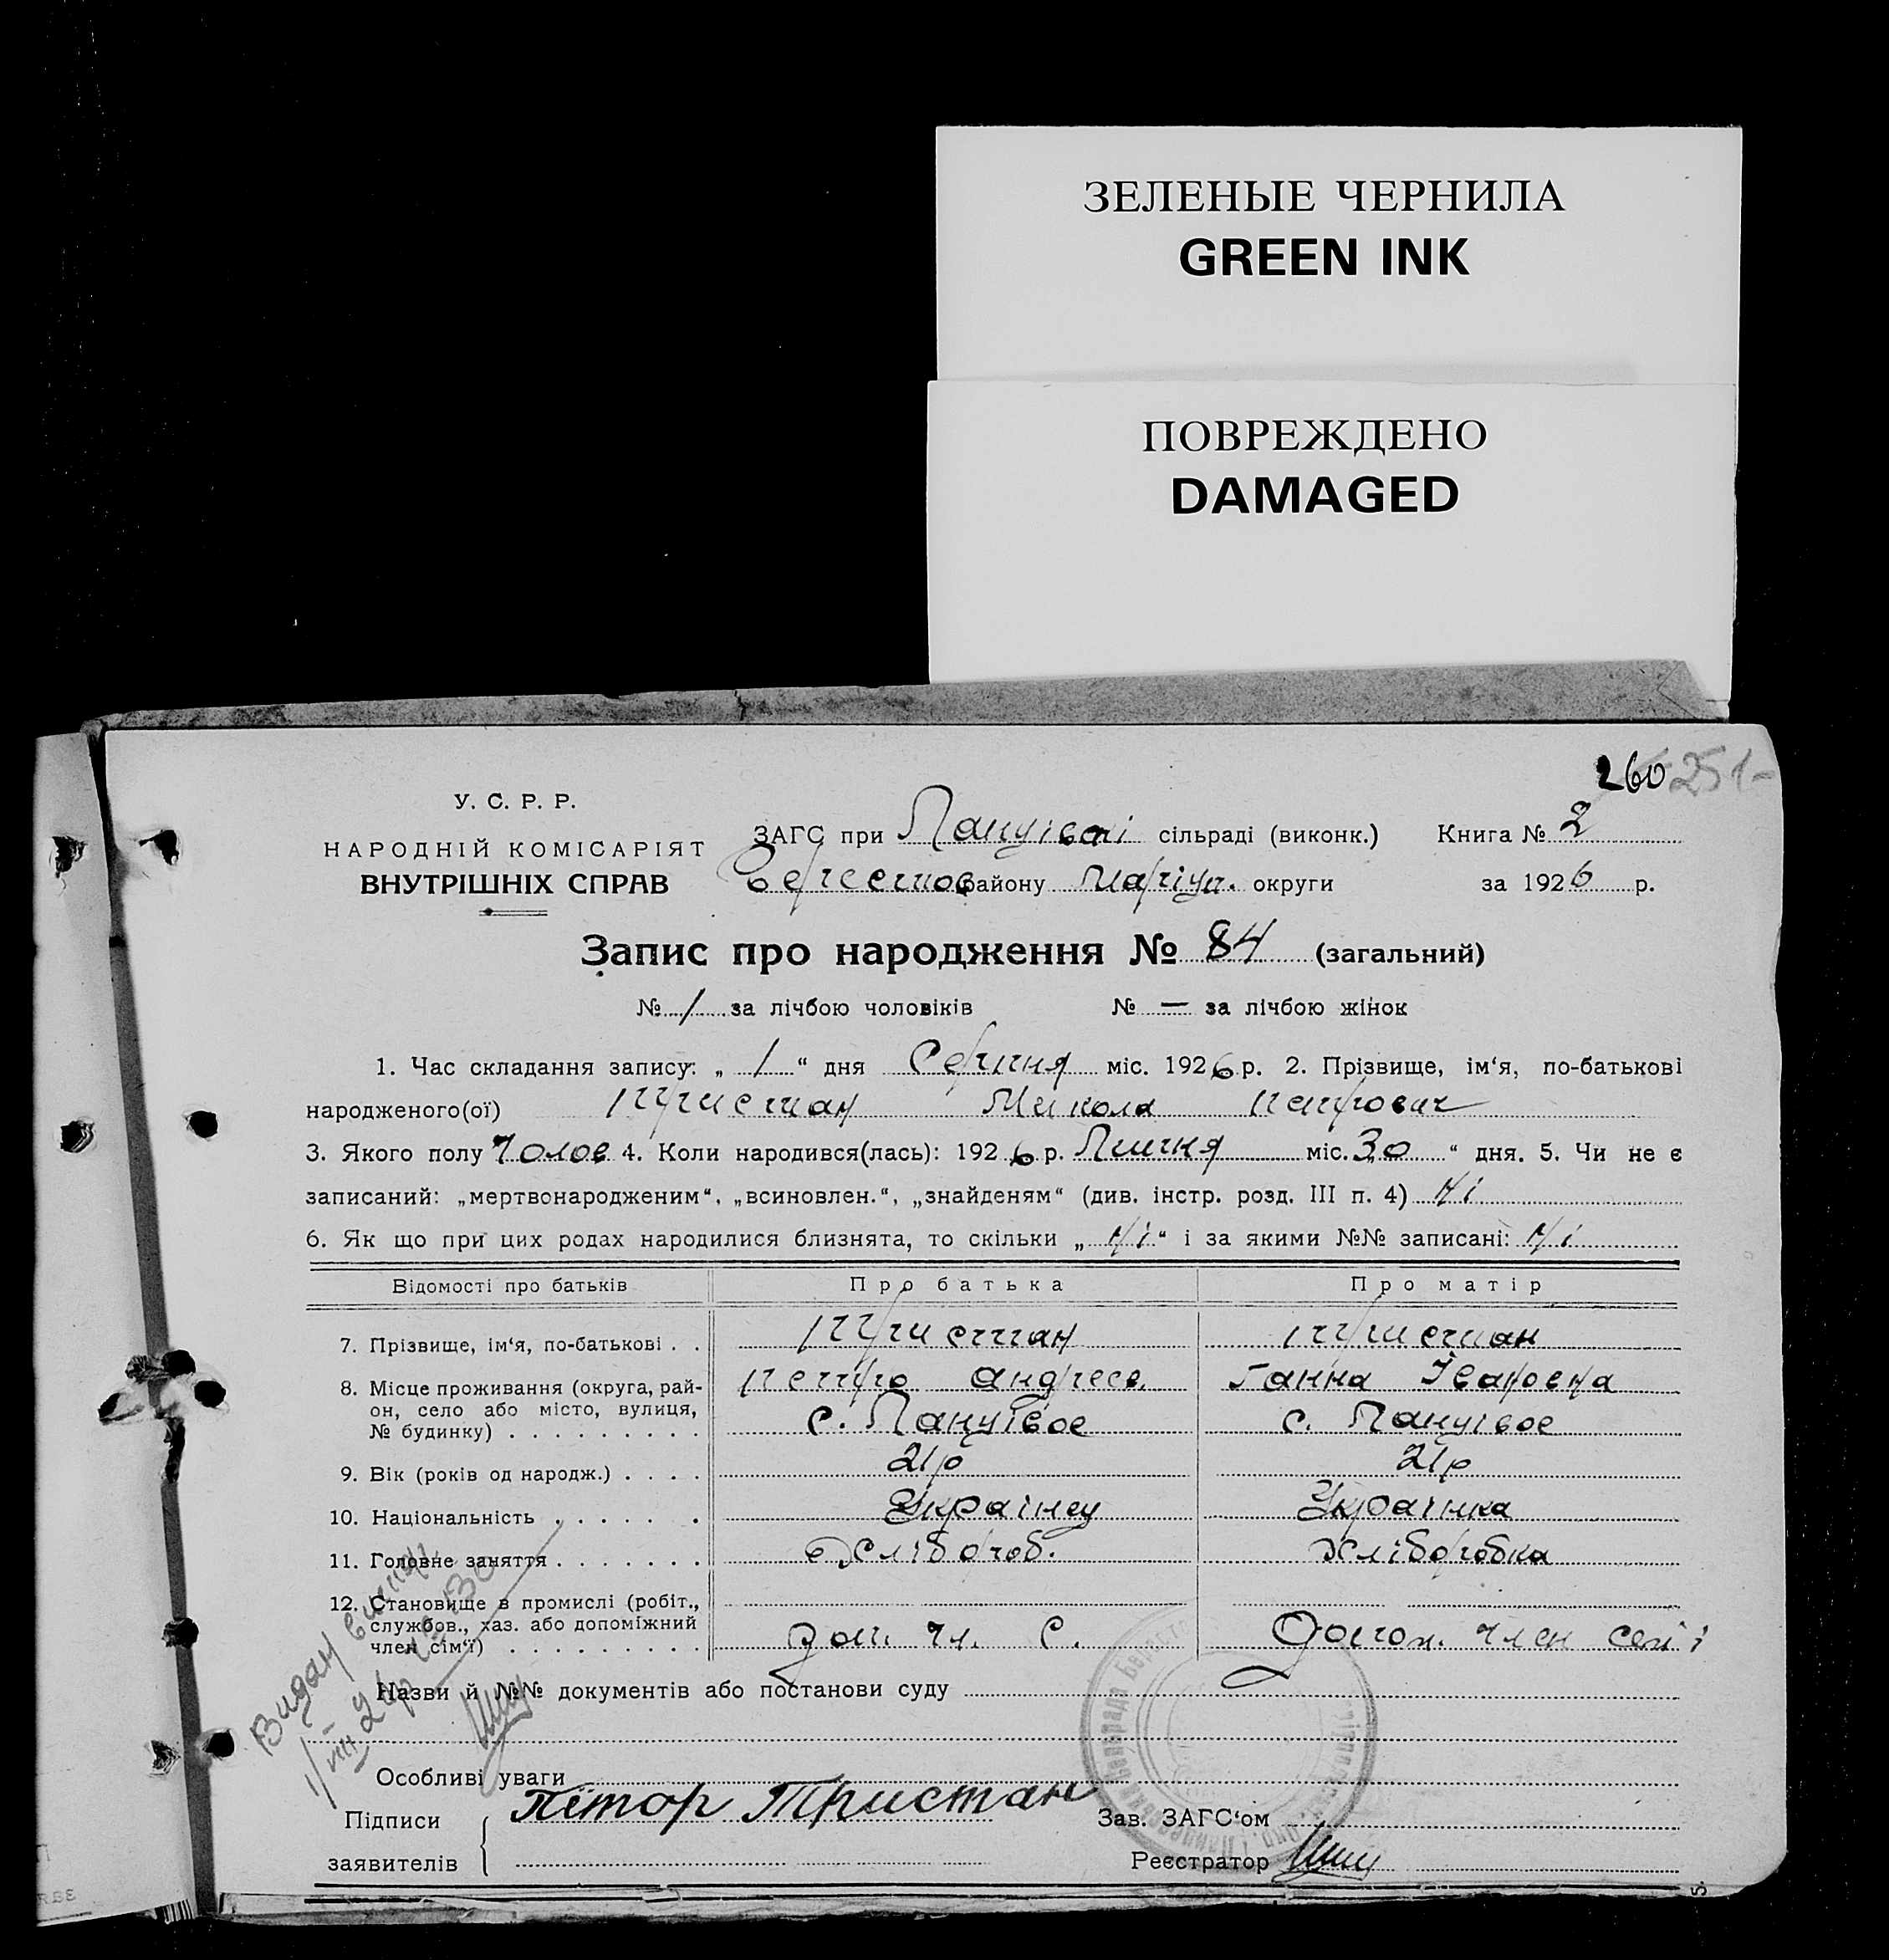 ЗЕЛЕНЫЕ ЧЕРНИЛА
GREEN INK
ПОВРЕЖДЕНО
DAMAGED
260 251-
У. С. Р. Р.
НАРОДНІЙ КОМІСАРІЯТ
ВНУТРІШНІХ СПРАВ
ЗАГС при сільраді (виконк.) Книга № 2
району Маріуп. округи за 1926 р.
Запис про народження № 84 (загальний)
№ 1 за лічбою чоловіків № — за лічбою жінок
1. Час складання запису: „ 1 “ дня Серпня міс. 1926 р. 2. Прізвище, ім‘я, по-батькові
народженого(ої) Тристан Микола Петрович
3. Якого полу Чолов 4. Коли народився(лась): 1926 р. Липня міс. „30 “ дня. 5. Чи не є
записаний: „мертвонародженим“, „всиновлен.“, „знайденям“ (див. інстр. розд. III п. 4) Ні
6. Як що при цих родах народилися близнята, то скільки „ Ні “ і за якими №№ записані: Ні
Відомості про батьків Про батька Про матір
7. Прізвище, ім‘я, по-батькові . . Тристан Тристан
Петро Андреев. Ганна Івановна
8. Місце проживання (округа, рай-
он, село або місто, вулиця,
№ будинку) . . . . . . . . . с. с.
9. Вік (років од народж.) . . . . 21р 21р
10. Національність . . . . . . Українец Українка
11. Головне заняття . . . . . . . Хлібороб. Хліборобка
12. Становище в промислі (робіт.,
службов., хаз. або допоміжний
член сім‘ї) . . . . . . . . . доп. чл. С. Допом. член семі
Назви й №№ документів або постанови суду
Видан
Особливі уваги
Підписи Пітор Тристан Зав. ЗАГС‘ом
заявителів Реєстратор
5.